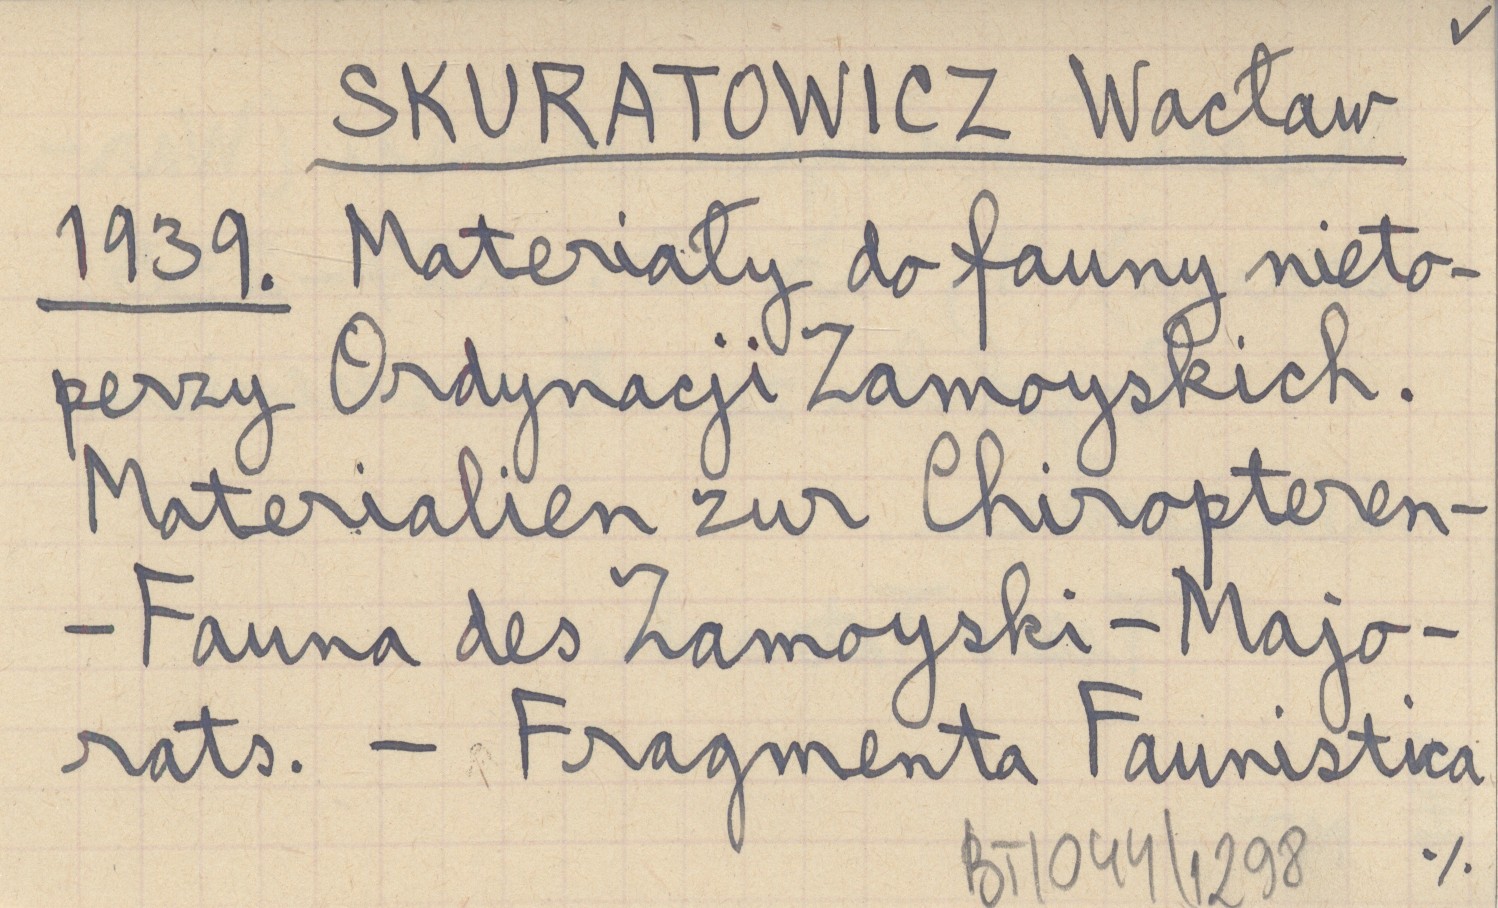 ✓
SKURATOWICZ Wacław
1939. Materiały do fauny nieto-
perzy Ordynacji Zamoyskich.
Materialien zur Chiropteren-
- Fauna des Zamoyski - Majo-
rats. - Fragmenta Faunistica
BT/044/1298 ·/.